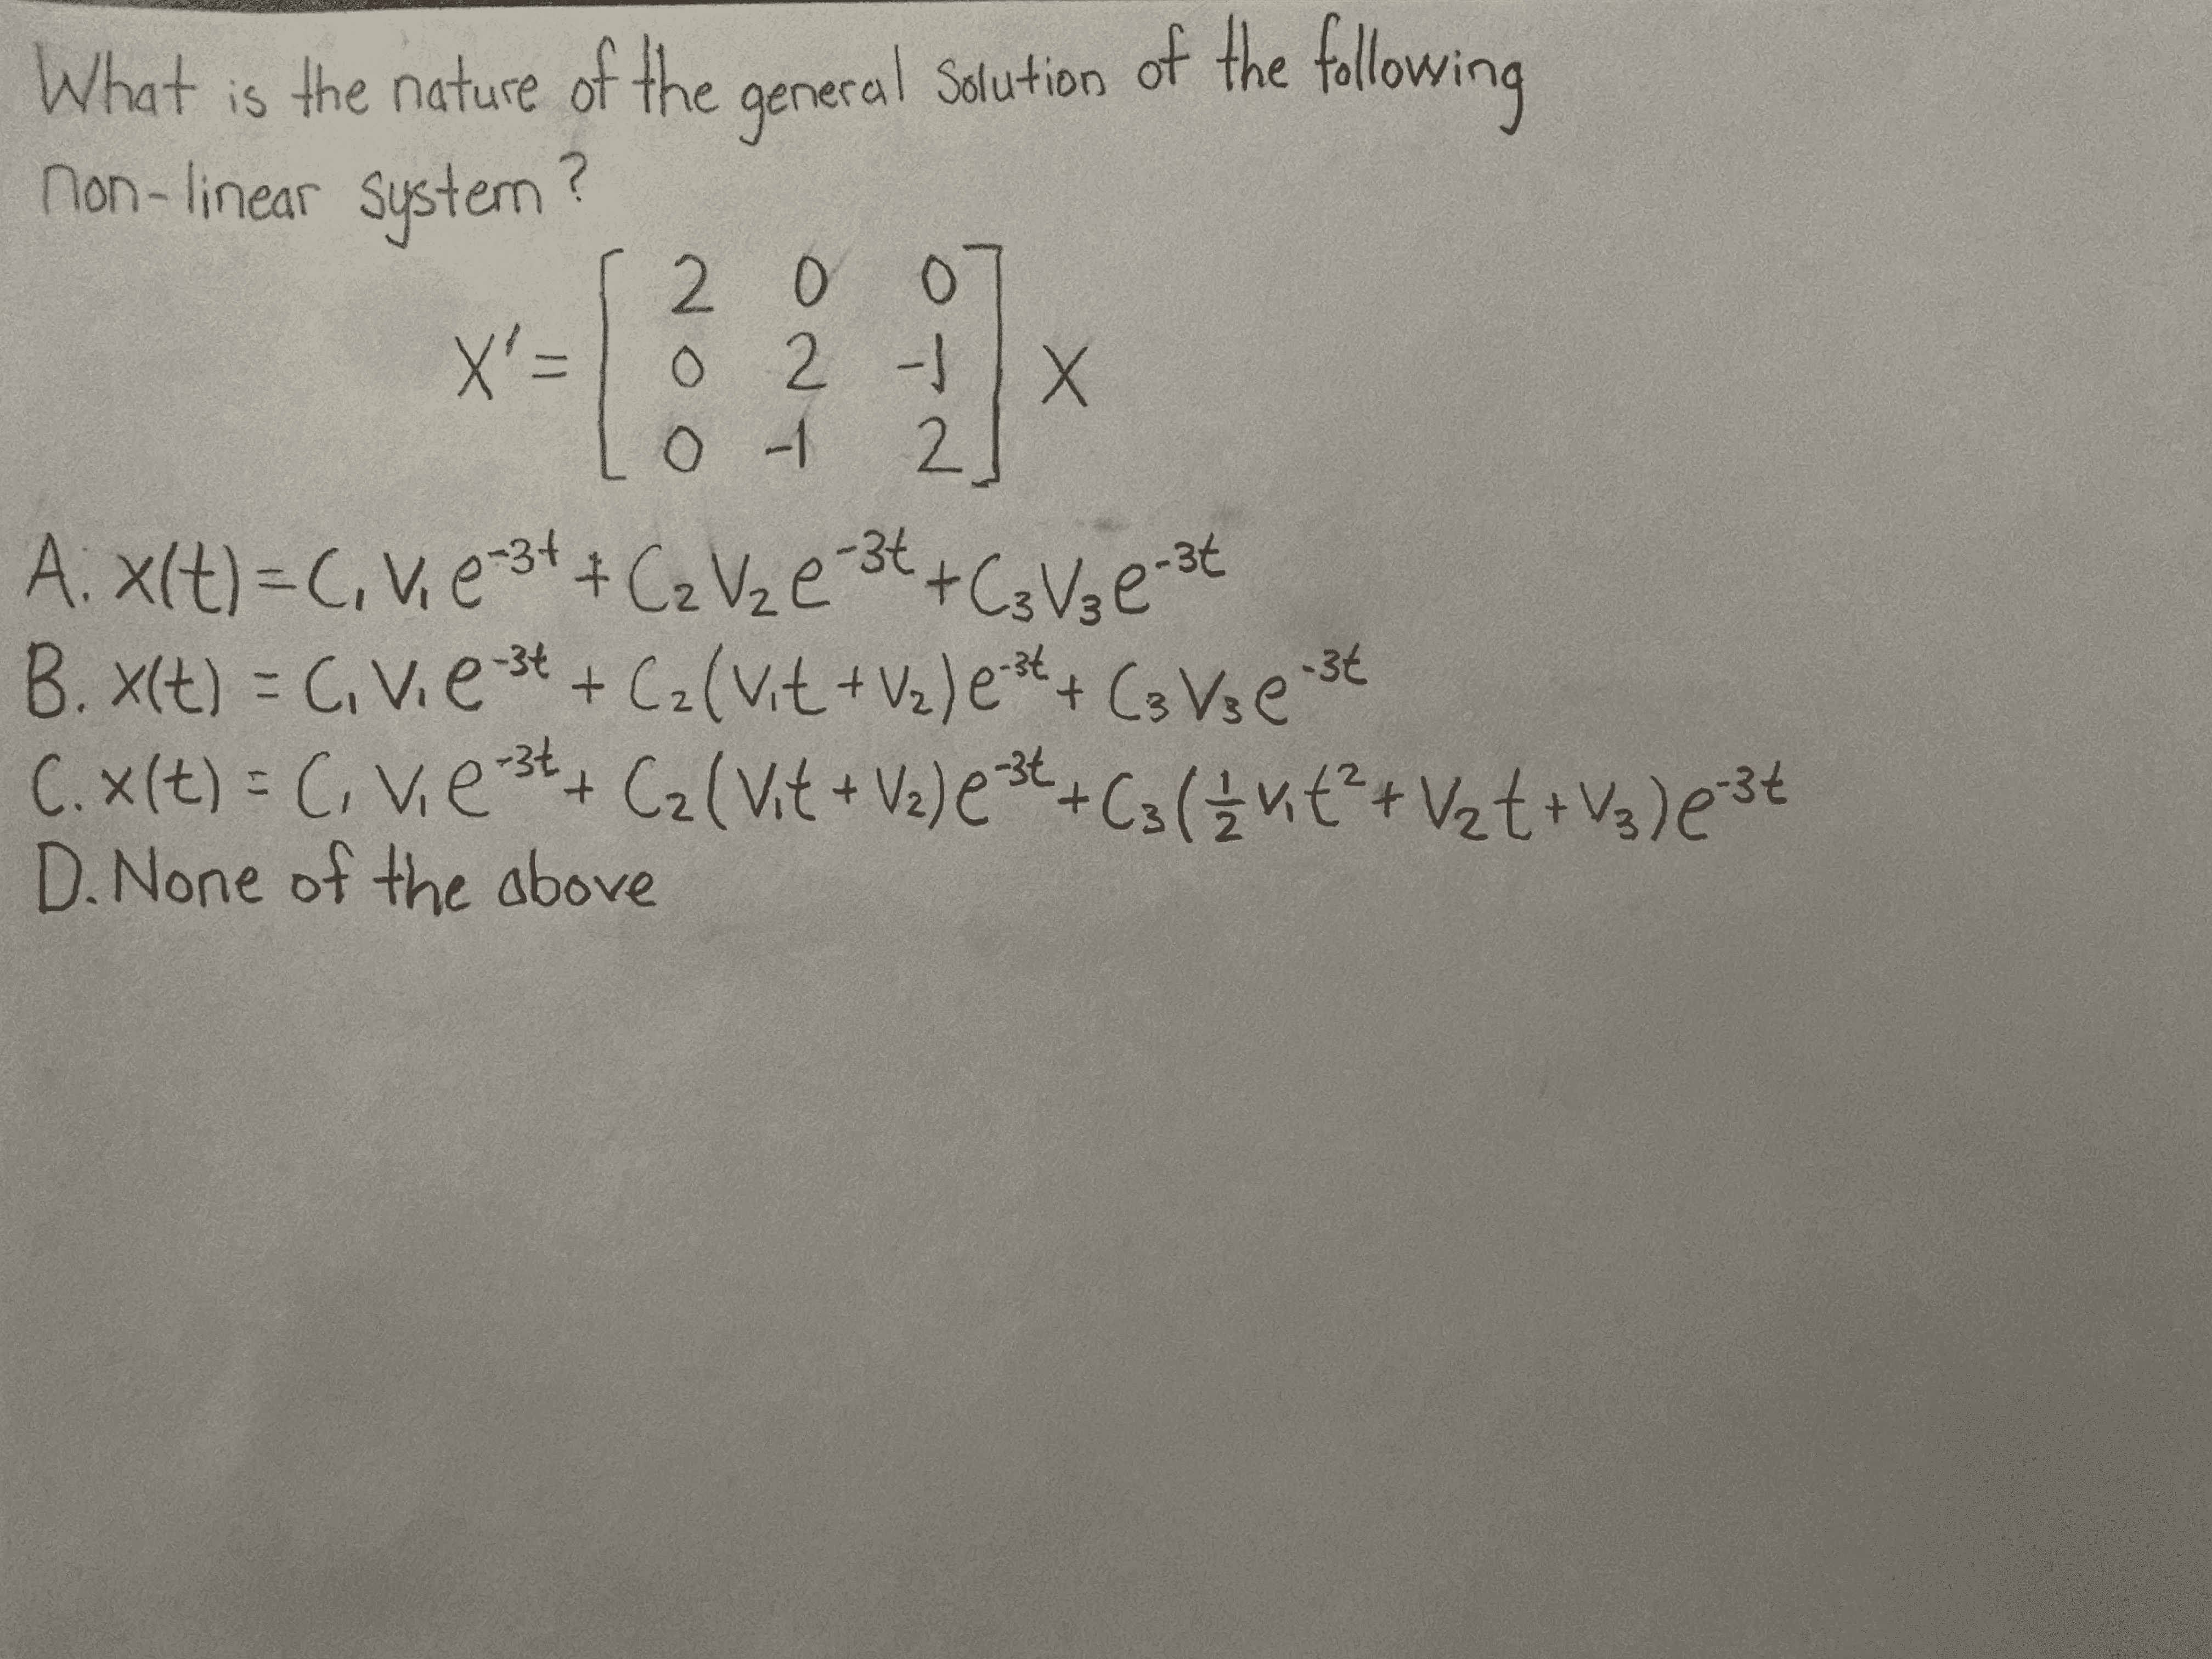 What is the nature of the general solution of the following
non-linear system?
X' = [ 2 0 0
0 2 -1
0 -1 2 ] X
A. x(t) = C₁V₁e⁻³ᵗ + C₂V₂e⁻³ᵗ + C₃V₃e⁻³ᵗ
B. x(t) = C₁V₁e⁻³ᵗ + C₂(V₁t + V₂)e⁻³ᵗ + C₃V₃e⁻³ᵗ
C. x(t) = C₁V₁e⁻³ᵗ + C₂(V₁t + V₂)e⁻³ᵗ + C₃(½V₁t² + V₂t + V₃)e⁻³ᵗ
D. None of the above